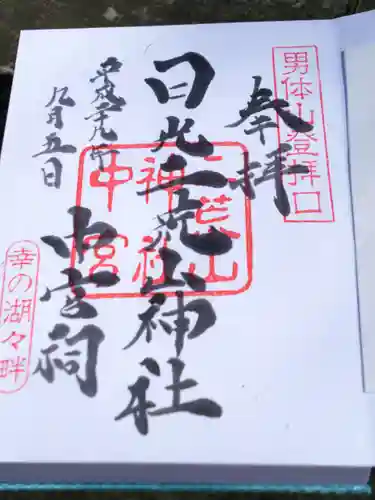 男体山登拝口
奉拝
日光二荒山神社
中宮祠
平成二十九年
九月五日
二荒山
神社
中宮
幸の湖々畔